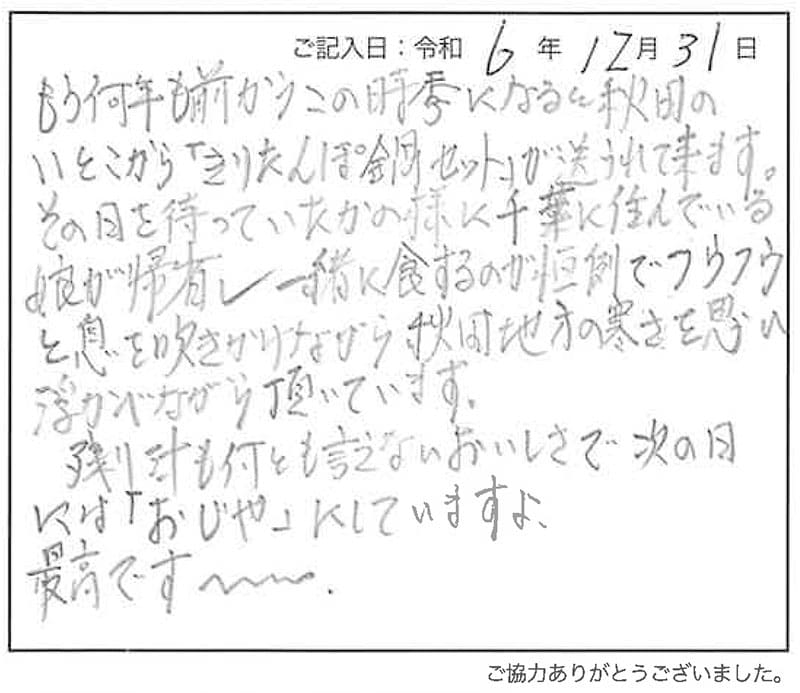 ご記入日：令和 6 年 12 月 31 日
もう何年も前からこの時季になると秋田の
いとこから「きりたんぽ鍋セット」が送られて来ます。
その日を待っていたかの様に千葉に住んでいる
娘が帰省し一緒に食するのが恒例でフウフウ
と息を吹きかけながら秋田地方の寒さを思い
浮かべながら頂いています。
残り汁も何とも言えないおいしさで次の日
には「おじや」にしていますよ、
最高です〜〜〜.
ご協力ありがとうございました。